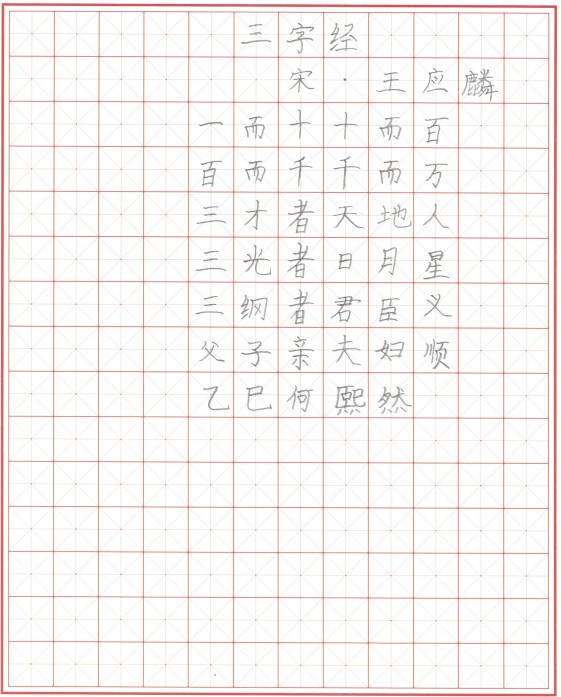 三字经
宋·王应麟
一而十十而百
百而千千而万
三才者天地人
三光者日月星
三纲者君臣义
父子亲夫妇顺
乙巳何熙然